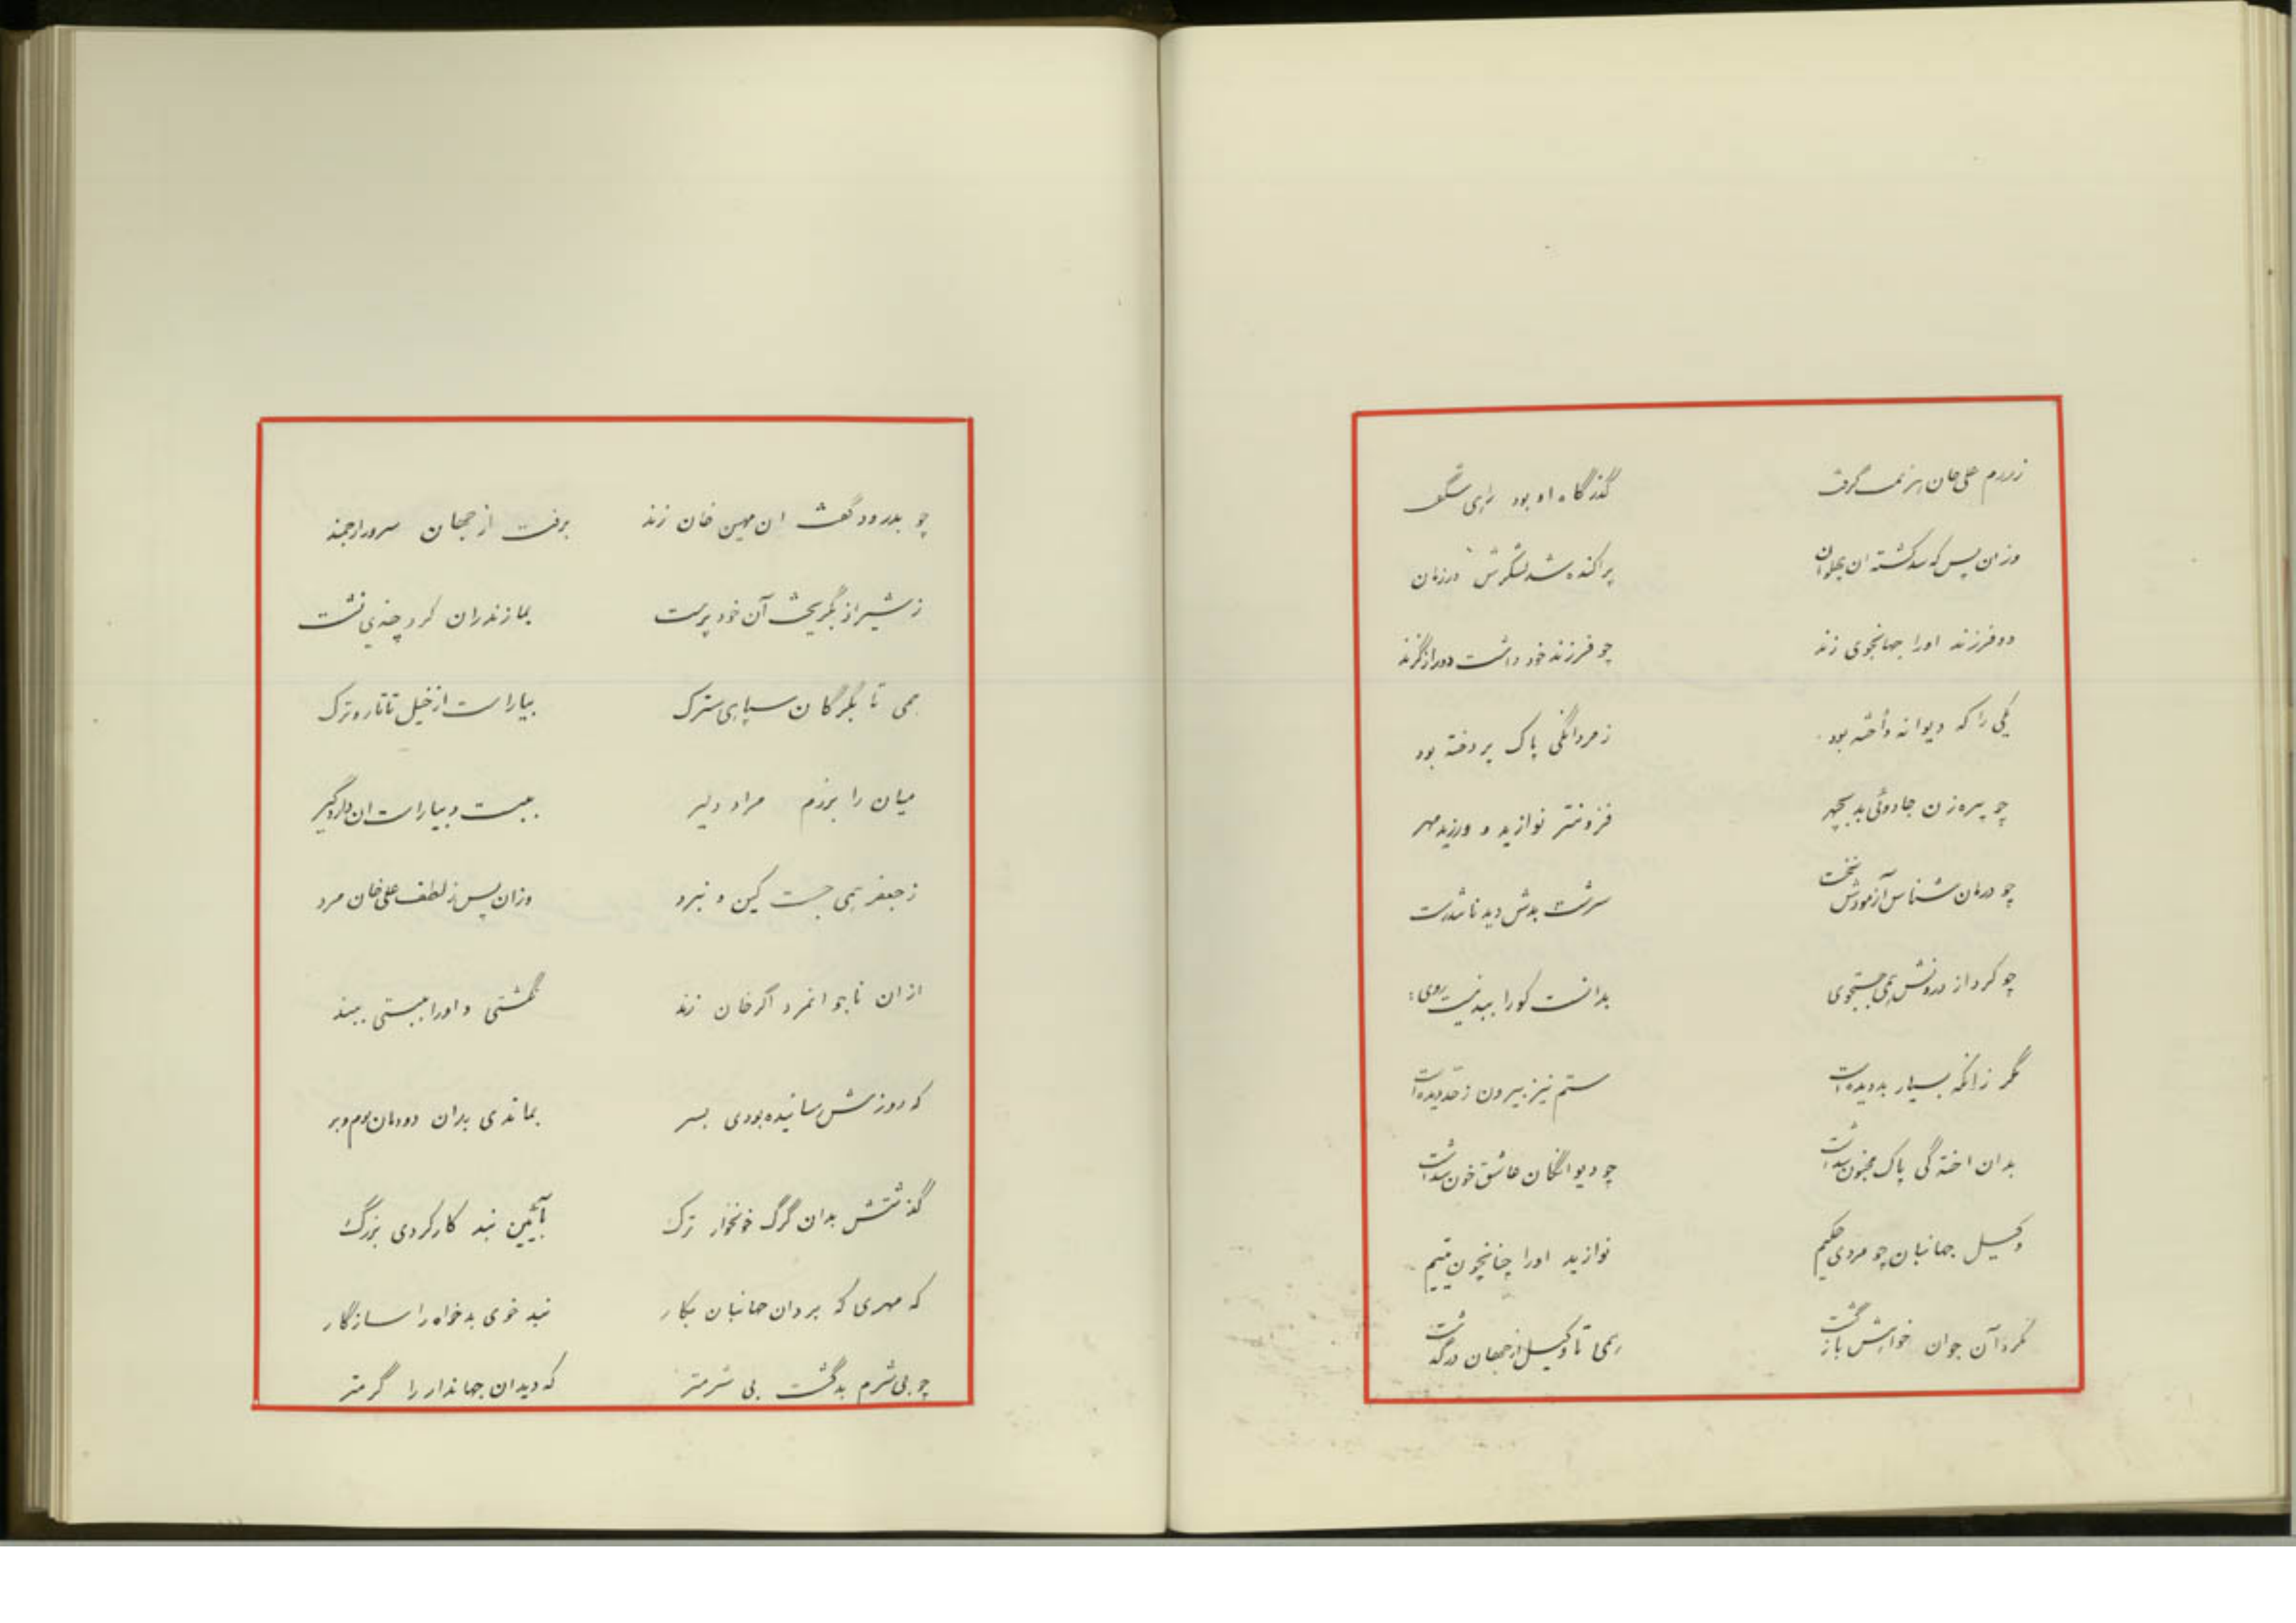 ز رزم علی خان هزیمت گرفت گذرگاه او بود رای شگفت
وزان پس که شد کشته ان پهلوان پراکنده شد لشکرش در زمان
دو فرزند اورا جهانجوی زند چو فرزند خود داشت دور از گزند
یکی را که دیوانه و اخته بود ز مردانگی پاک پردخته بود
چو پیره زن جادوئی بد بچهر فزونتر نوازید و ورزید مهر
چو درمان شناس آزمودش نخست سرشت بدش دید نا تندرست
چو کرد از درونش همی جستجوی بدانست کورا بهبد نیست روی
مگر زانکه بسیار بد دیده است ستم نیز بیرون ز حد دیده است
بدان اخته گی پاک مجنون شده است چو دیوانگان عاشق خون شده است
وکیل جهانبان چو مردی حکیم نوازید اورا چنانچون یتیم
نکرد آن جوان خواهش باز گشت همی تا وکیل از جهان در گذشت
چو بدرود گفت ان مهین خان زند برفت از جهان سرور ارجمند
ز شیراز بگریخت آن خود پرست بمازندران کرد چندی نشست
همی تا بگرگان سپاهی سترک بیاراست از خیل تاتار و ترک
میان را برزم مراد دلیر ببست و بیاراست ان دار و گیر
ز جعفر همی جست کین و نبرد وزان پس ز لطفعلی خان مرد
از ان ناجوانمرد اگر خان زند نگشتی و اورا ببستی ببند
که روزش رسانیده بودی بسر بماندی بدان دودمان بوم و بر
گذشتش بدان گرگ خونخوار ترک بآئین نبد کار کردی بزرگ
که مهری که بردان جهانبان بکار نبد خوی بدخواه را سازگار
چو بی شرم بد گشت بی شرمتر که دید ان جهاندار را گرمتر